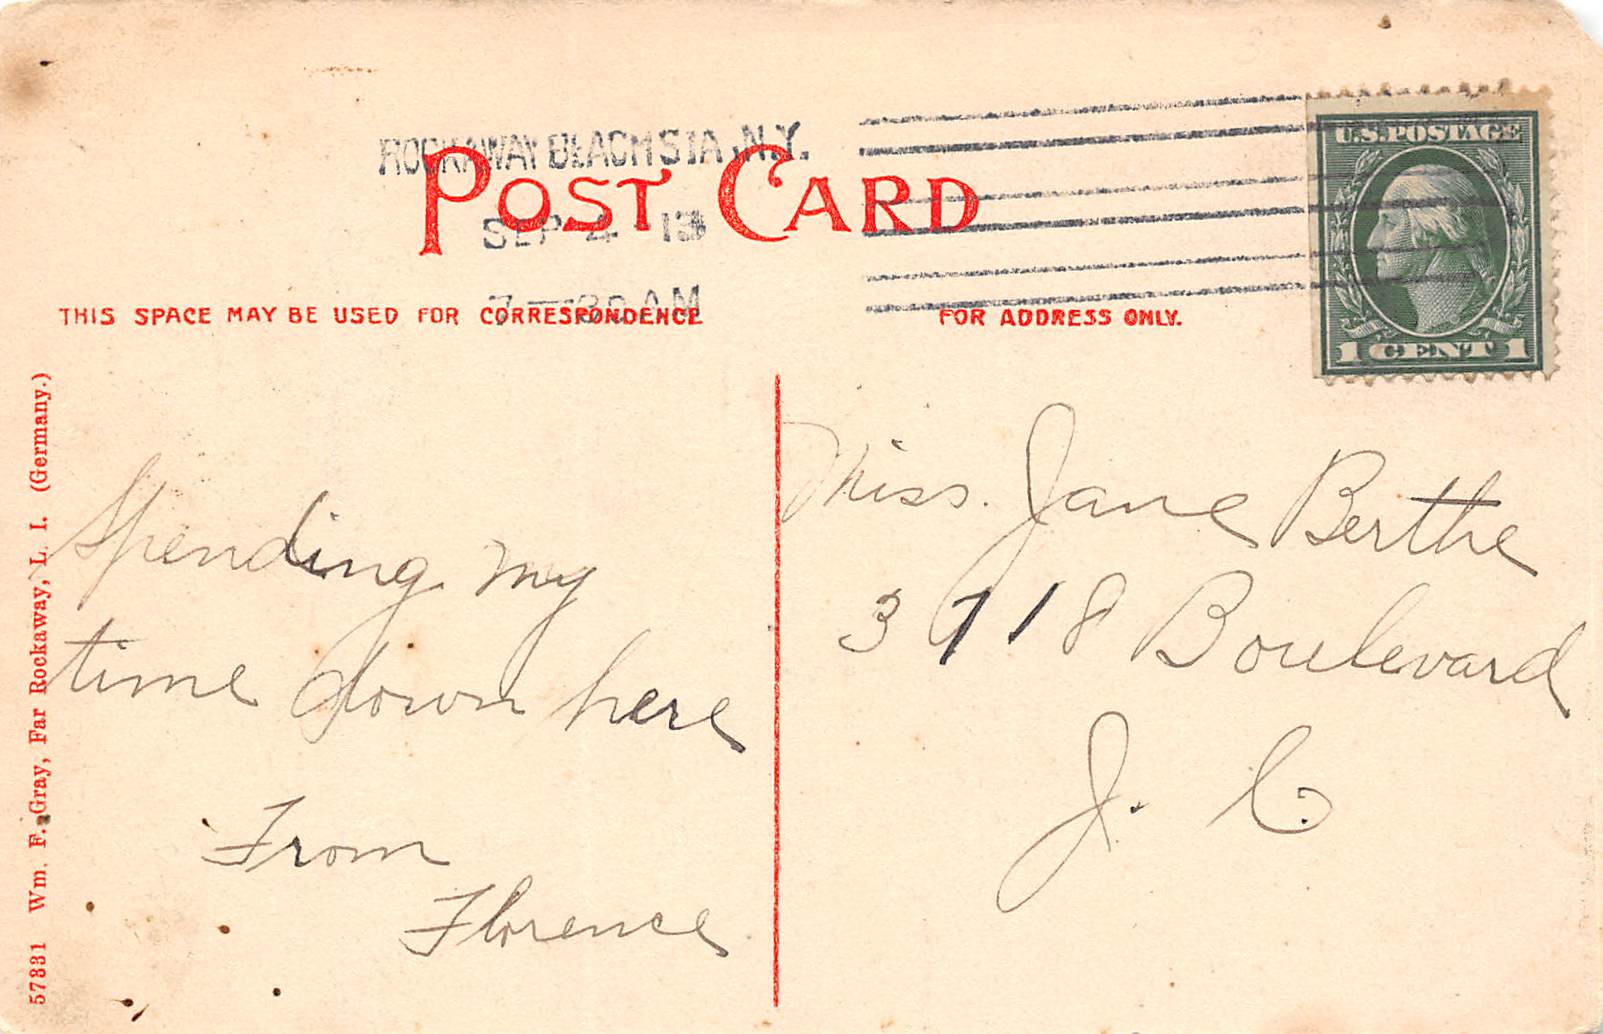 ROCKAWAY BEACH STA., N.Y.
POST CARD
SEP 4 13
7—30 AM
THIS SPACE MAY BE USED FOR CORRESPONDENCE
FOR ADDRESS ONLY.
U.S. POSTAGE
1 CENT 1
57831 Wm. F. Gray, Far Rockaway, L. I. (Germany.)
Spending my
time down here
From
Florence
Miss. Jane Berthe
3718 Boulevard
J. C.